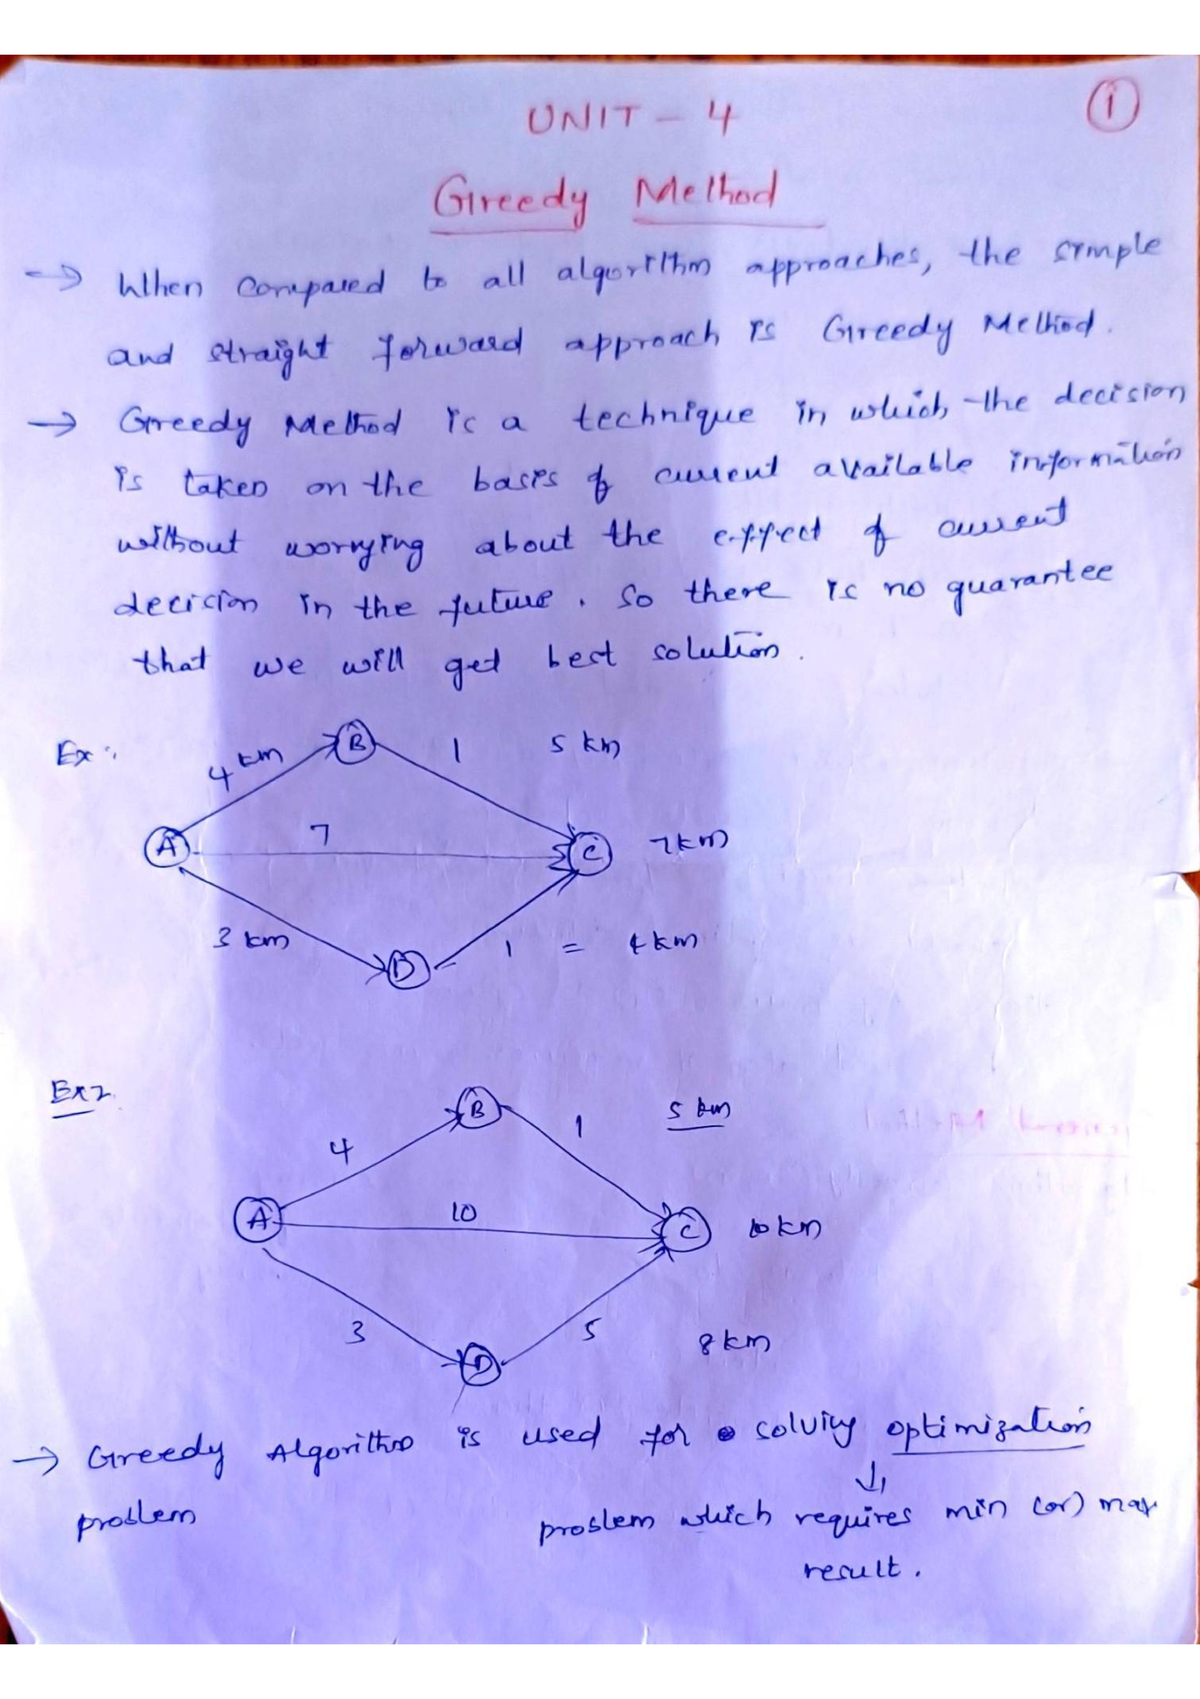 UNIT - 4
1
Greedy Method
→ When compared to all algorithm approaches, the simple
and straight forward approach is Greedy Method.
→ Greedy Method is a technique in which the decision
is taken on the basis of current available information
without worrying about the effect of current
decision in the future. So there is no guarantee
that we will get best solution.
Ex:
4 km
B
1
5 km
A
7
C
7 km
3 km
D
1 = 4 km
Ex 2.
B
4
1
5 km
A
10
C
10 km
3
D
5
8 km
→ Greedy Algorithm is used for solving optimization
problem
↓
problem which requires min (or) max
result.